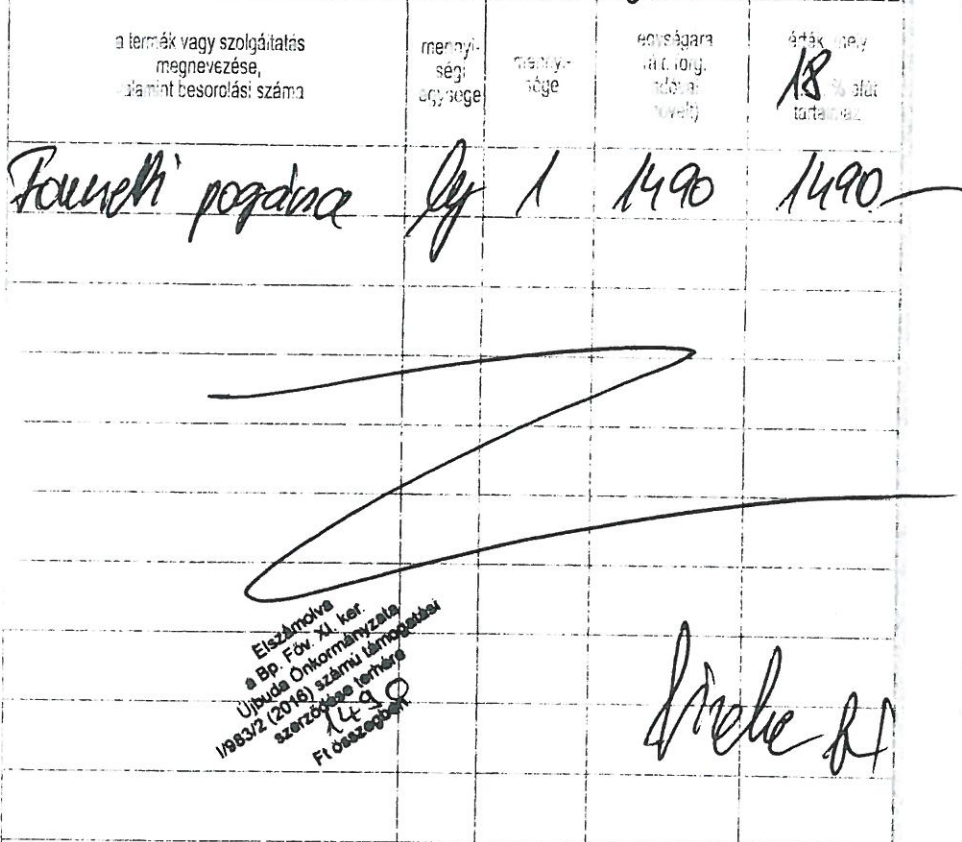 a termék vagy szolgáltatás
megnevezése,
valamint besorolási száma
mennyi-
ségi
egysége
mennyi-
sége
egységára
(ált. forg.
adóval
növelt)
érték, mely
18 % áfát
tartalmaz
Fornetti pogácsa 1 1490 1490
Elszámolva
a Bp. Főv. XI. ker.
Újbuda Önkormányzata
I/983/2 (2016) számú támogatási
szerződése terhére
1490
Ft összegben.